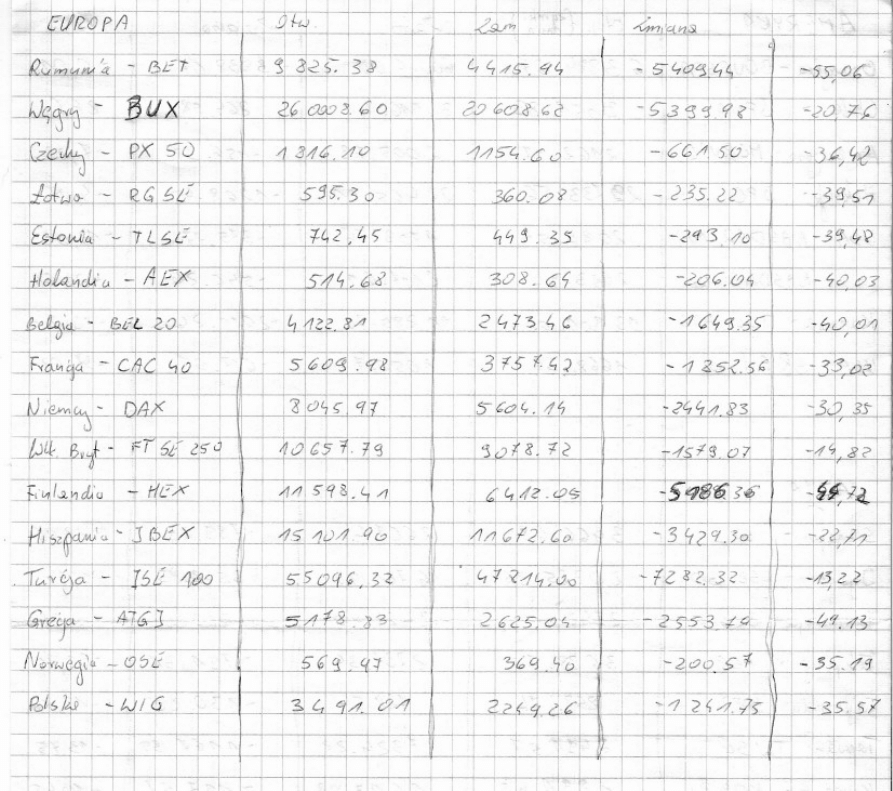 EUROPA Otw. Zam Zmiana
Rumunia - BET 9 825.38 4415.94 -5409.44 -55,06
Węgry - BUX 26 008.60 20 608.62 -5399.98 -20.76
Czechy - PX 50 1816.10 1154.60 -661 50 -36,42
Łotwa - RGSE 595.30 360.08 -235.22 -39,51
Estonia - TLSE 742,45 449.35 -293.10 -39,48
Holandia - AEX 514.68 308.64 -206.04 -40,03
Belgia - BEL 20 4122.81 2473 46 -1649.35 -40,01
Francja - CAC 40 5609.98 3757.42 -1852.56 -33,02
Niemcy - DAX 8045.97 5604.14 -2441.83 -30,35
Wlk. Bryt - FTSE 250 10657.79 9078.72 -1579.07 -14,82
Finlandia - HEX 11 598.41 6412.05 -5186.36 -44,72
Hiszpania - IBEX 15 101.90 11672.60 -3429.30 -22,71
Turcja - ISE 100 55096,32 47814.00 -7282.32 -13,22
Grecja - ATGI 5178.83 2625.04 -2553.79 -49.13
Norwegia - OSE 569.97 369.40 -200.57 -35.19
Polska - WIG 3491.01 2249.26 -1241.75 -35.57